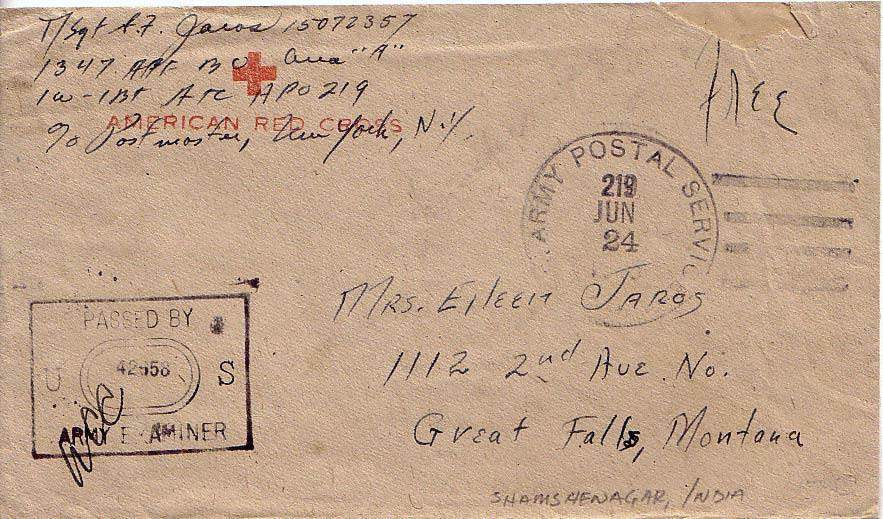 T/Sgt A.F. Jaros 15072357
1347 AAF BU Area "A"
AMERICAN RED CROSS
Ind-1Br ATC APO 219
% Postmaster, New York, N.Y.
Free
ARMY POSTAL SERVIC
219
JUN
24
PASSED BY
U S
ARMY EXAMINER
Mrs. Eileen Jaros
1112 2nd Ave. No.
Great Falls, Montana
SHAMSHENAGAR, INDIA